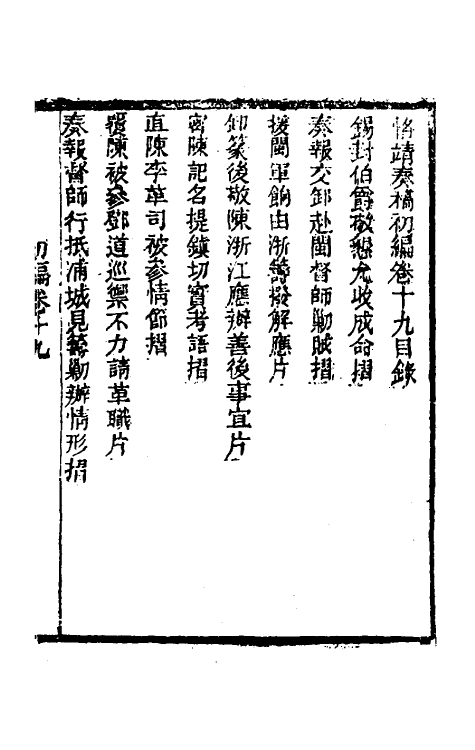 恪靖奏稿初編卷十九目錄
錫封伯爵敬懇允收成命摺
奏報交卸赴閩督師勦賊摺
援閩軍餉由浙籌撥解應片
卸篆後敬陳浙江應辦善後事宜片
密陳記名提鎮切實考語摺
直陳李革司被參情節摺
覆陳被參鄧道巡禦不力請革職片
奏報督師行抵浦城見籌勦辦情形摺
初編卷十九